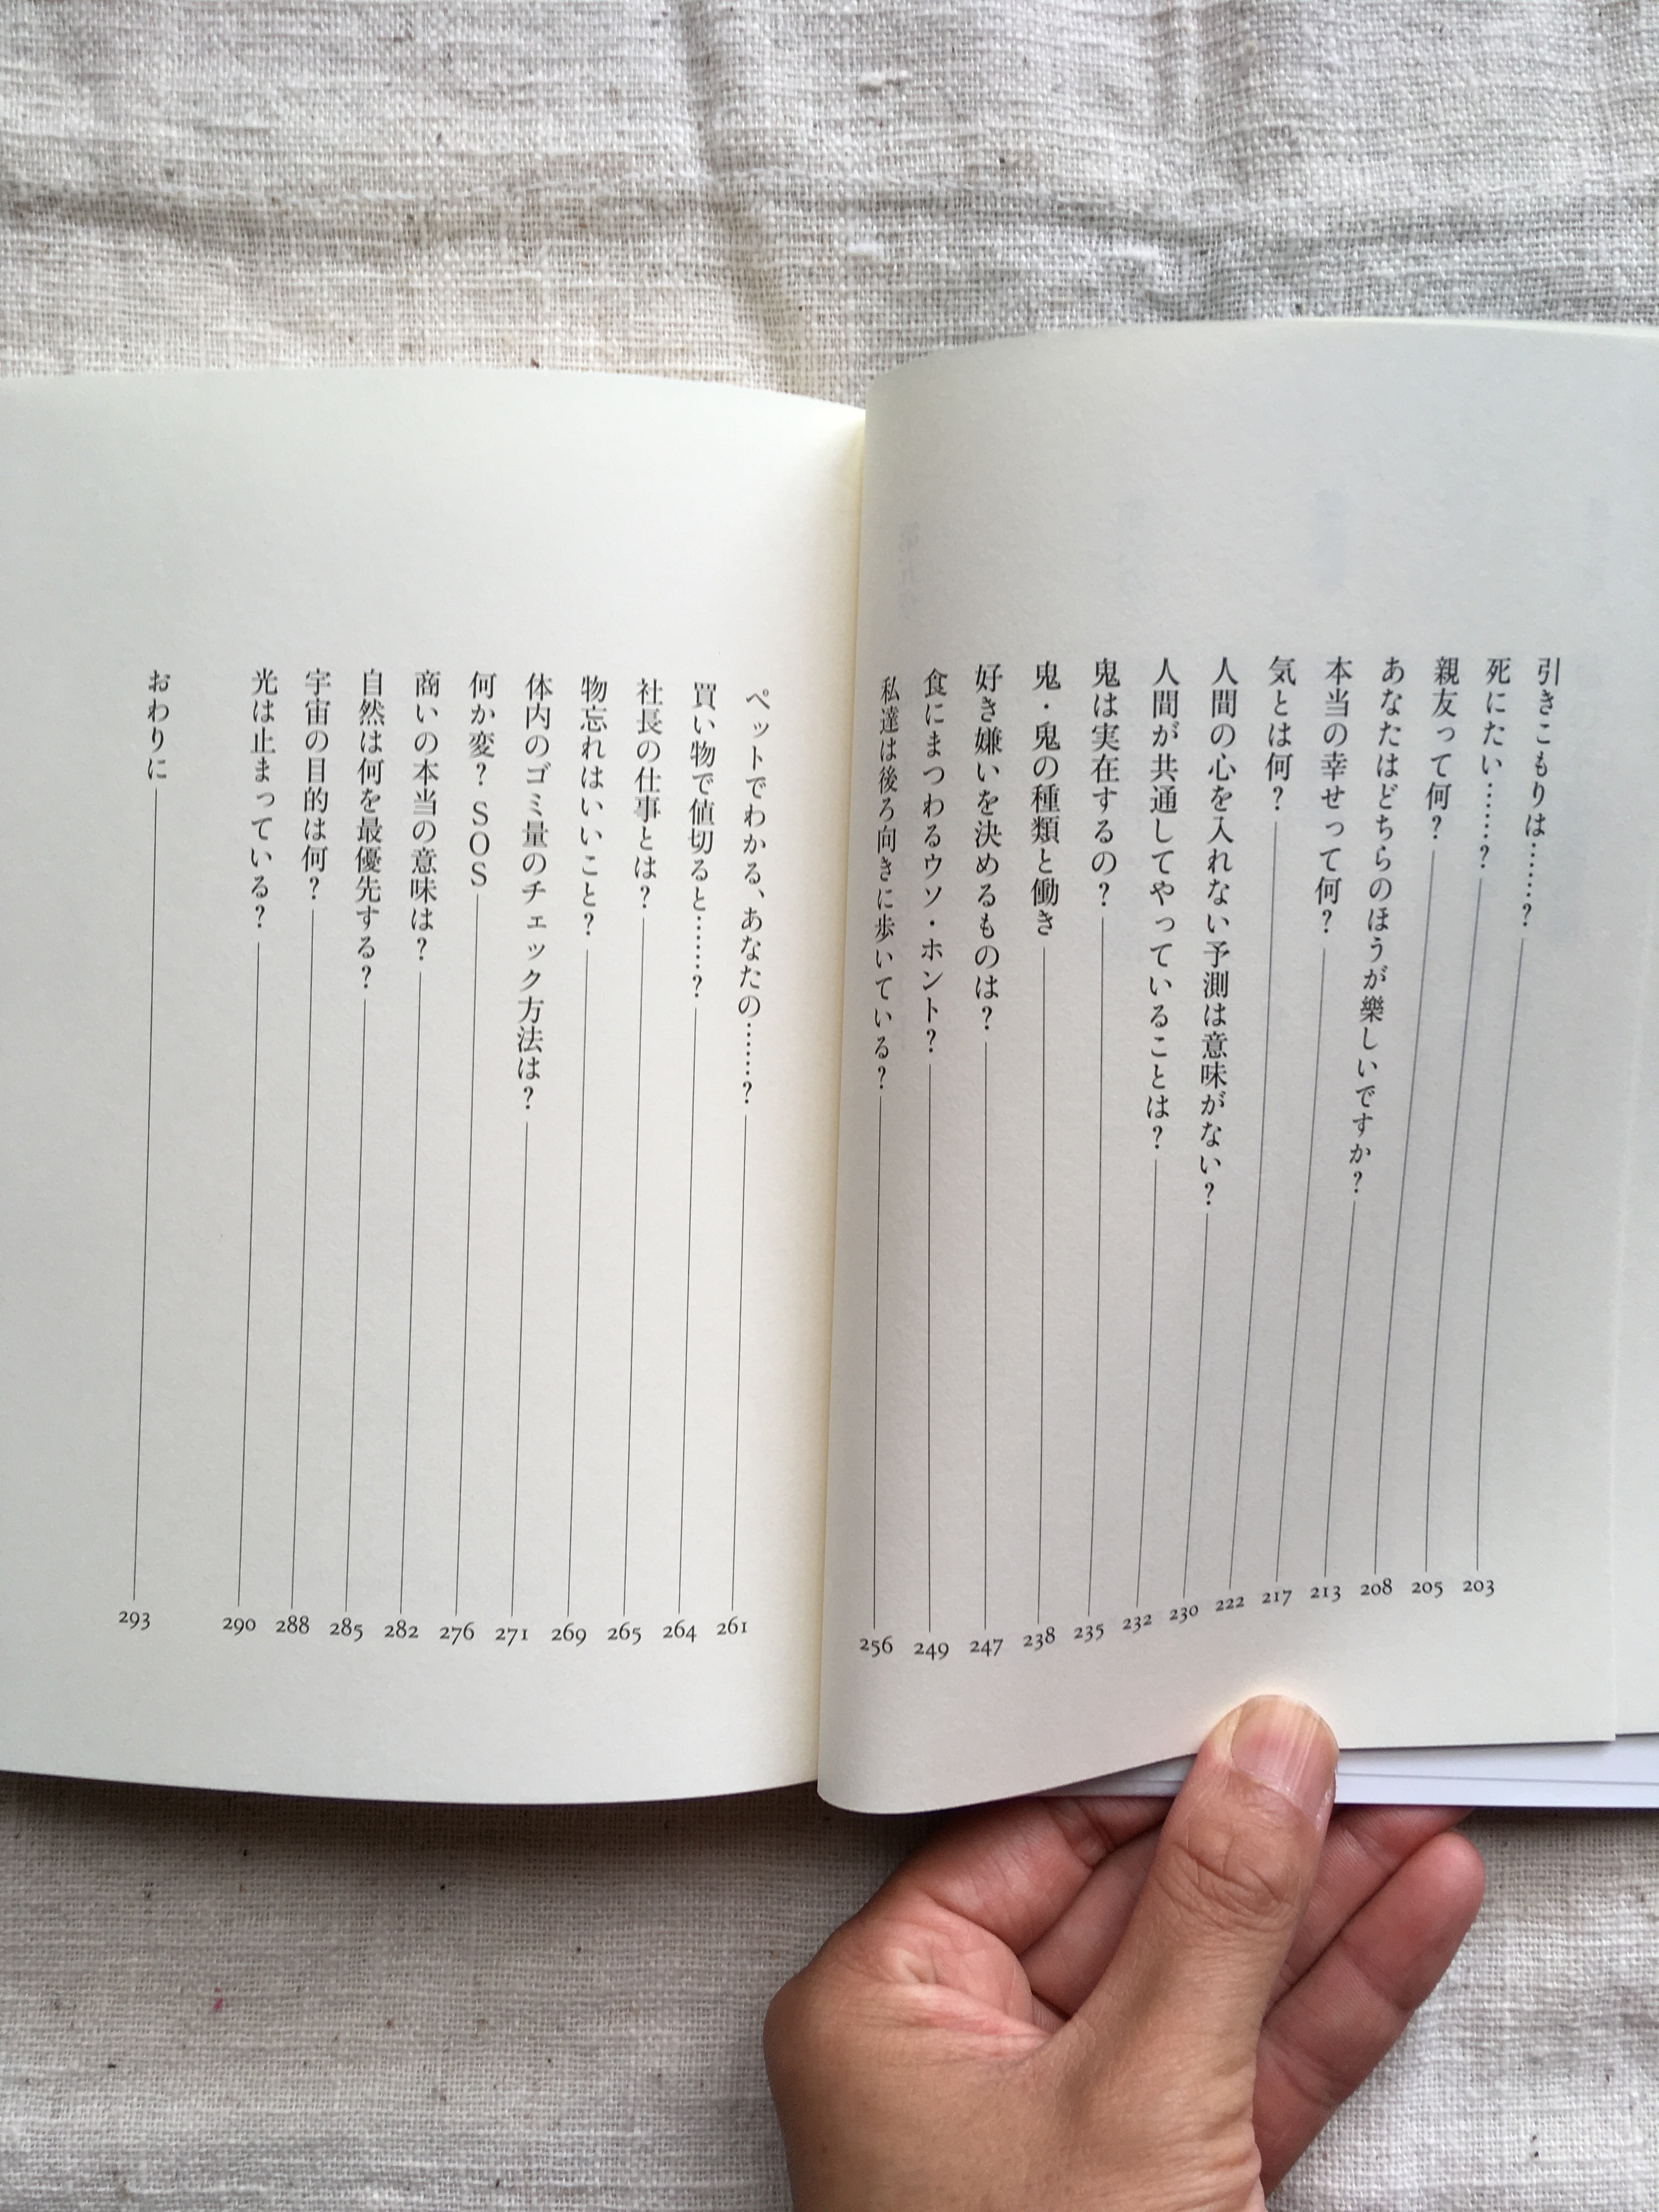 引きこもりは……? 203
死にたい……? 205
親友って何? 208
あなたはどちらのほうが樂しいですか? 213
本当の幸せって何? 217
気とは何? 222
人間の心を入れない予測は意味がない? 230
人間が共通してやっていることは? 232
鬼は実在するの? 235
鬼・鬼の種類と働き 238
好き嫌いを決めるものは? 247
食にまつわるウソ・ホント? 249
私達は後ろ向きに歩いている? 256
ペットでわかる、あなたの……? 261
買い物で値切ると……? 264
社長の仕事とは? 265
物忘れはいいこと? 269
体内のゴミ量のチェック方法は? 271
何か変? SOS 276
商いの本当の意味は? 282
自然は何を最優先する? 285
宇宙の目的は何? 288
光は止まっている? 290
おわりに 293